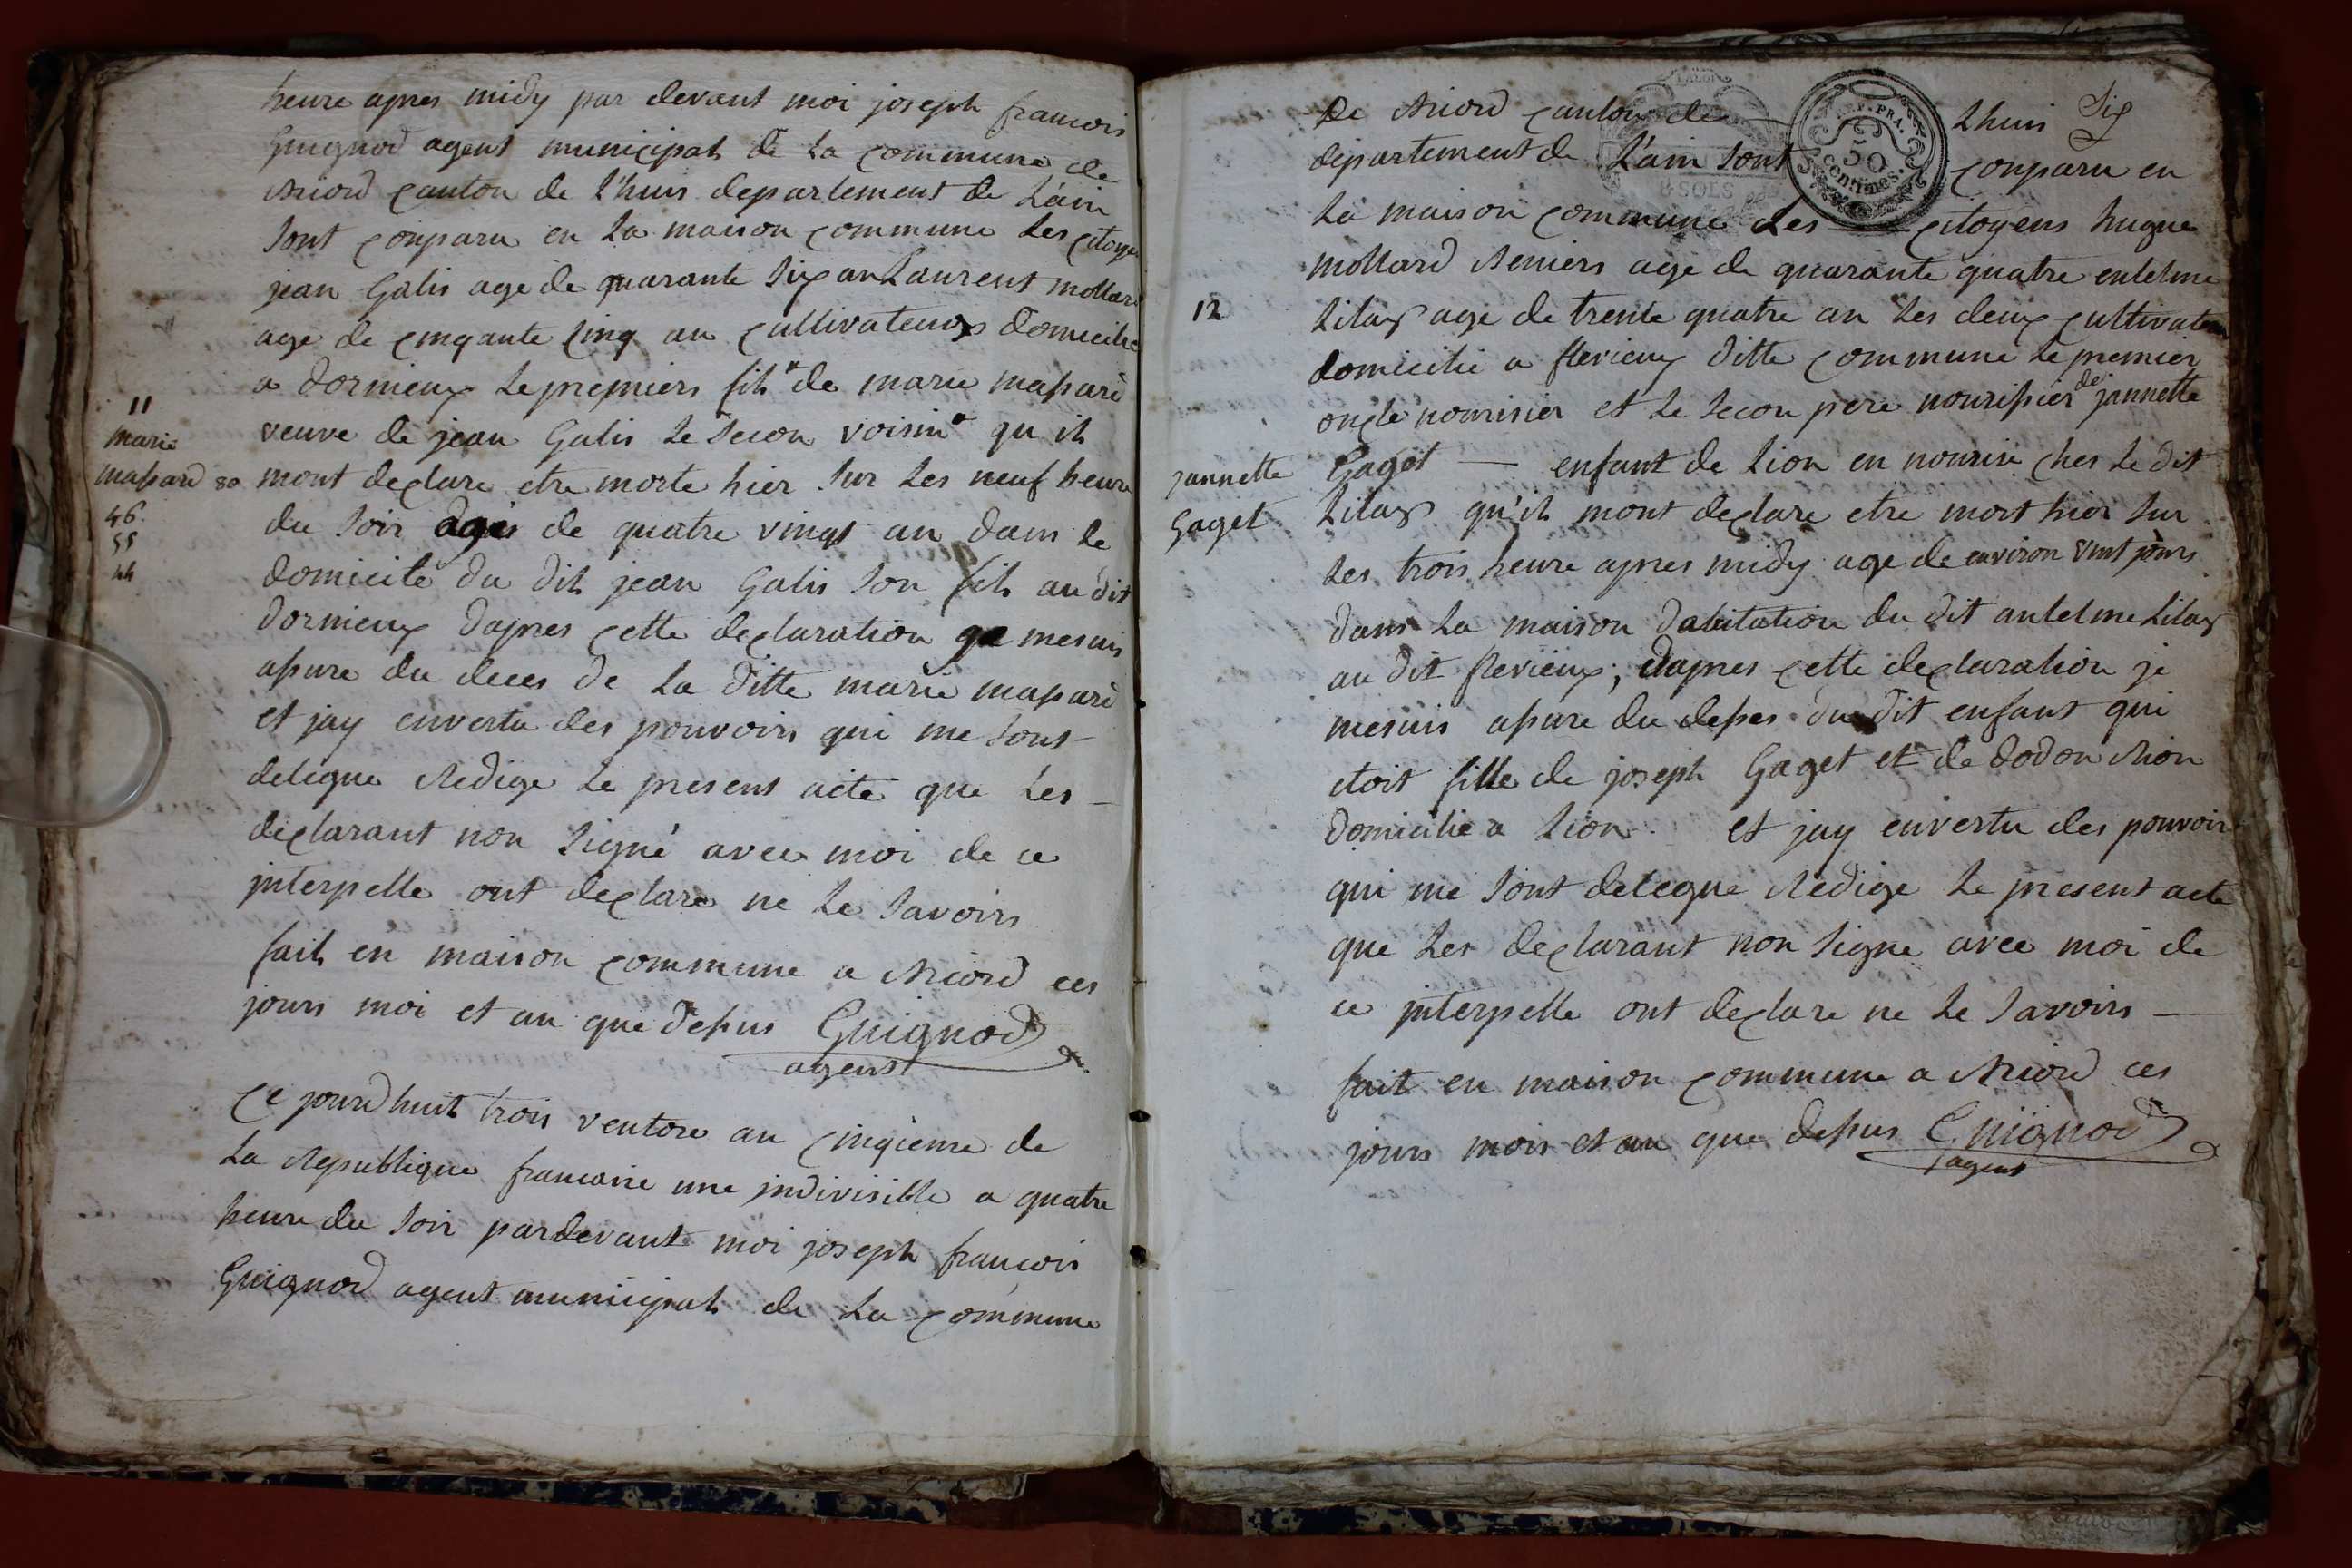 heure apres midy par devant moi joseph francois
Guignod agent municipal de la commune de
Briord canton de l'huis departement de L'ain
sont conparu en la maison commune les citoye
jean Galis age de quarante six an Laurent mollard
age de cinqante cinq an cultivateurs domicilie
a dornieux le premiers fils de marie massard
veuve de jean Galis le secon voisin qu il
mont declare etre morte hier sur les neuf heure
du soir agés de quatre vingt an dans le
domicile du dit jean Galis son fils au dit
dornieux dapres cette declaration ge mesuis
assure du deces de la ditte marie massard
et jay envertu des pouvoirs qui me sont
delegue Redige le present acte que les
declarant non signé avec moi de ce
interpelle ont declare ne le savoirs
fait en maison commune a Briord ces
jours moi et an que dessus Guignod
agent
11
marie
massard 80
46
55
44
Ce jourdhuit trois ventose an cinqieme de
la Republique francaise une indivisible a quatre
heure du soir pardevant moi joseph francois
Guignod agent municipal de la commune
De Briord canton de Lhuis Six
REP. FRA.
50
centimes.
8 SOLS
departement de L'ain sont conparu en
la maison commune les citoyens hugue
mollard Reniers age de quarante quatre entelme
Lilaz age de trente quatre an les deux cultivateur
domicilie a flevieux ditte commune le premier
oncle nourisier et le secon pere nourissier de jannette
Gaget — enfant de Lion en nourise ches le dit
Lilaz qu'il mont declare etre mort hier sur
les trois heure apres midy age de environ vint jours
dans la maison dabitation du dit antelme Lilaz
au dit flevieux; dapres cette declaration je
mesuis assure du desses du dit enfant qui
etoit fille de joseph Gaget et de dodon
domicilie a Lion. et jay envertu des pouvoir
qui me sont delegue Redige le present acte
que les declarant non signe avec moi de
ce interpelle ont declare ne le savoirs —
fait en maison commune a Briord ces
jours mois et an que dessus Guignod
agent
12
jannette
Gaget